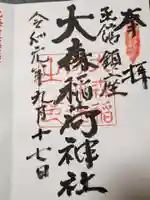 奉拝
函館鎮座
大森稲荷神社
令和元年九月十七日